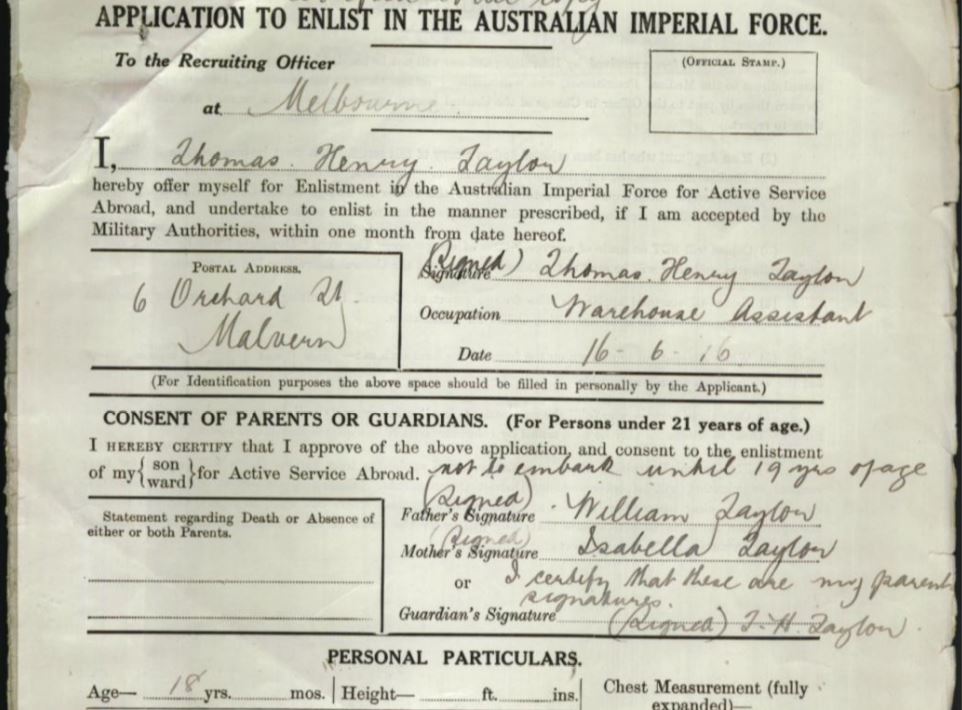 copy
APPLICATION TO ENLIST IN THE AUSTRALIAN IMPERIAL FORCE.
To the Recruiting Officer
(OFFICIAL STAMP.)
at Melbourne
I, Thomas Henry Taylor
hereby offer myself for Enlistment in the Australian Imperial Force for Active Service
Abroad, and undertake to enlist in the manner prescribed, if I am accepted by the
Military Authorities, within one month from date hereof.
POSTAL ADDRESS.
6 Orchard St
Malvern
(Signed)
Signature Thomas Henry Taylor
Occupation Warehouse Assistant
Date 16-6-16
(For Identification purposes the above space should be filled in personally by the Applicant.)
CONSENT OF PARENTS OR GUARDIANS. (For Persons under 21 years of age.)
I HEREBY CERTIFY that I approve of the above application, and consent to the enlistment
of my { son ward } for Active Service Abroad. not to embark until 19 yrs of age
Statement regarding Death or Absence of
either or both Parents.
(Signed)
Father's Signature William Taylor
(Signed)
Mother's Signature Isabella Taylor
or I certify that these are my parents
signatures.
Guardian's Signature (Signed) T. H. Taylor
PERSONAL PARTICULARS.
Age— 18 yrs. mos. Height— ft. ins. Chest Measurement (fully
expanded)—